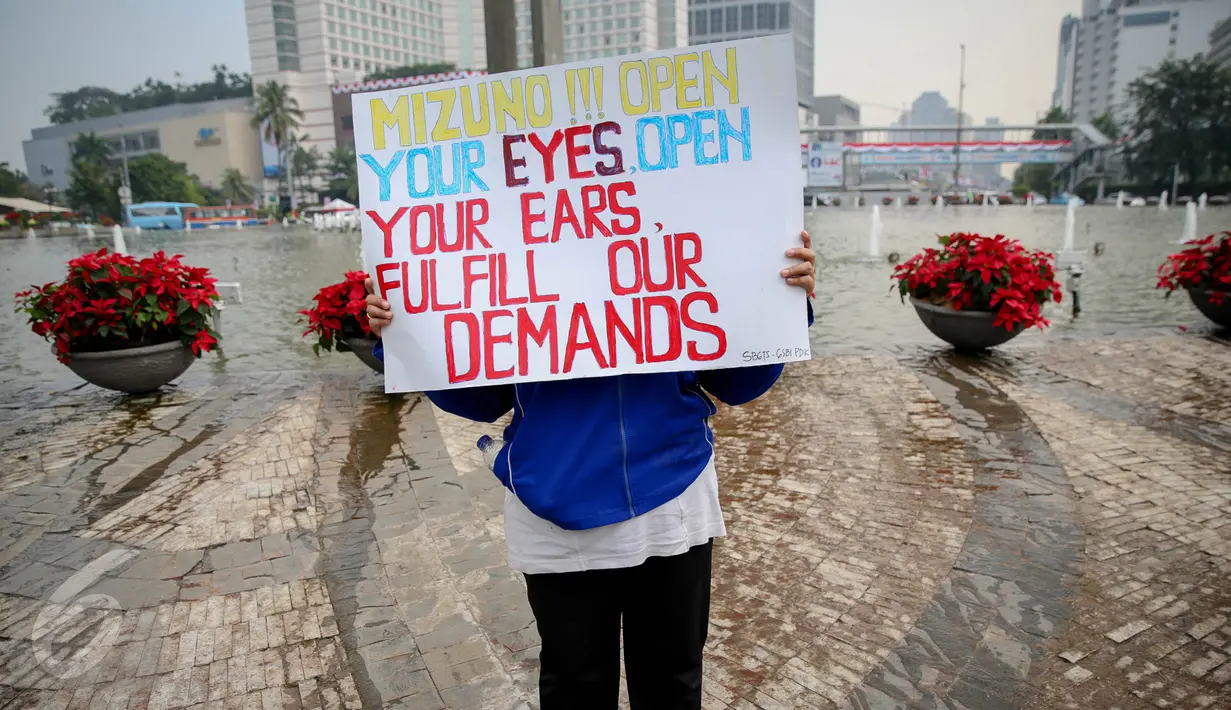 MIZUNO !!! OPEN
YOUR EYES, OPEN
YOUR EARS,
FULFILL OUR
DEMANDS
SBGTS-GSBI PDK
6